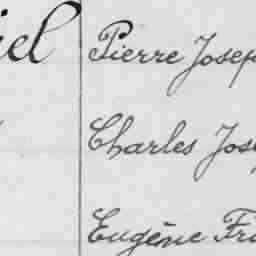 iel Pierre Josep
Charles Jos
Eugène Fr